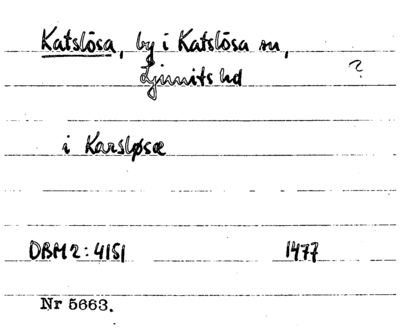 Katslösa, by i Katslösa sn,
Ljunits hd ?
i Karsløsæ
DBM2: 4151 1477
Nr 5663.